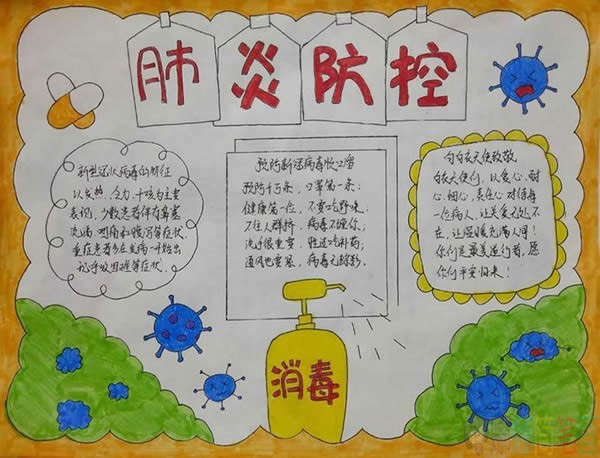 肺炎防控
新型冠状病毒的特征
以发热、乏力、干咳为主要
表现,少数患者伴有鼻塞
流涕、咽痛和腹泻等症状
重症患者多在发病一周后出
现呼吸困难等症状.
预防新冠病毒顺口溜
预防千万条,口罩第一条;
健康第一位,不要吃野味.
不往人群挤,病毒不理你;
洗手很
通风也要
向白衣天使致敬
白衣天使们,以爱心、耐
心、细心、责任心对待每
一位病人,让关爱无处不
在,让温暖充满人间!
你们是最美逆行者,愿
你们平安归来!
消毒